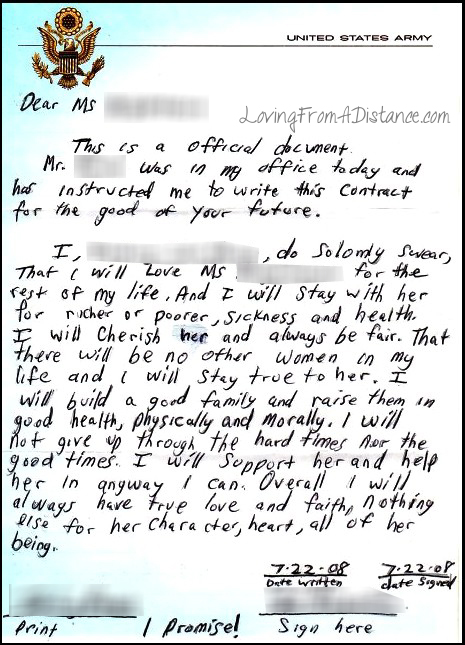 UNITED STATES ARMY
LovingFromADistance.com
Dear Ms
This is a official document.
Mr. was in my office today and
has instructed me to write this Contract
for the good of your future.
I, , do Solomly Swear,
That I will Love Ms for the
rest of my life. And I will stay with her
for richer or poorer, sickness and health.
I will Cherish her and always be fair. That
there will be no other women in my
life and I will stay true to her. I
will build a good family and raise them in
good health, physically and morally. I will
not give up through the hard times nor the
good times. I will support her and help
her in anyway I can. Overall I will
always have true love and faith, nothing
else for her character, heart, all of her
being.
7-22-08 7-22-08
Date written Date Signed
Print I Promise! Sign here